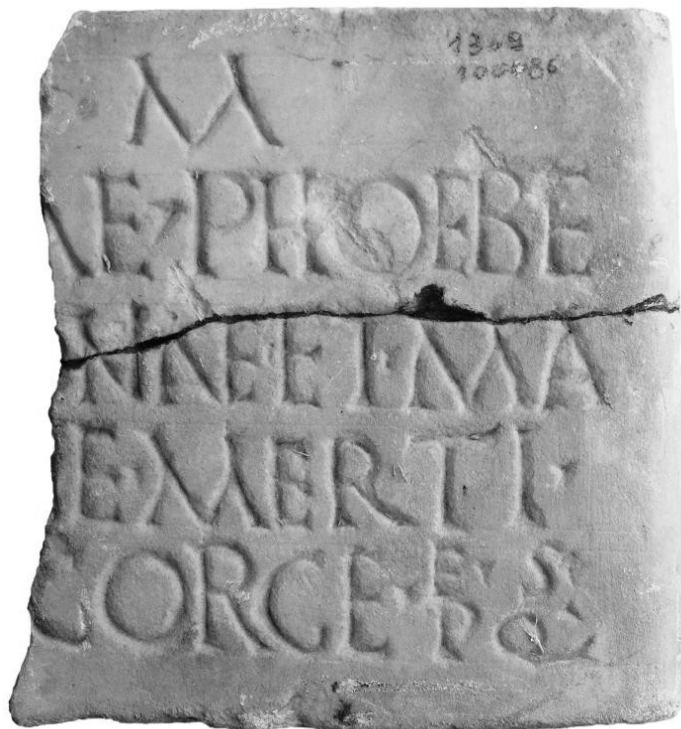 1309
100086
M
AE PHOEBE
NNAE ET MA
E·MERTI·
GORGE· E·S
PQ